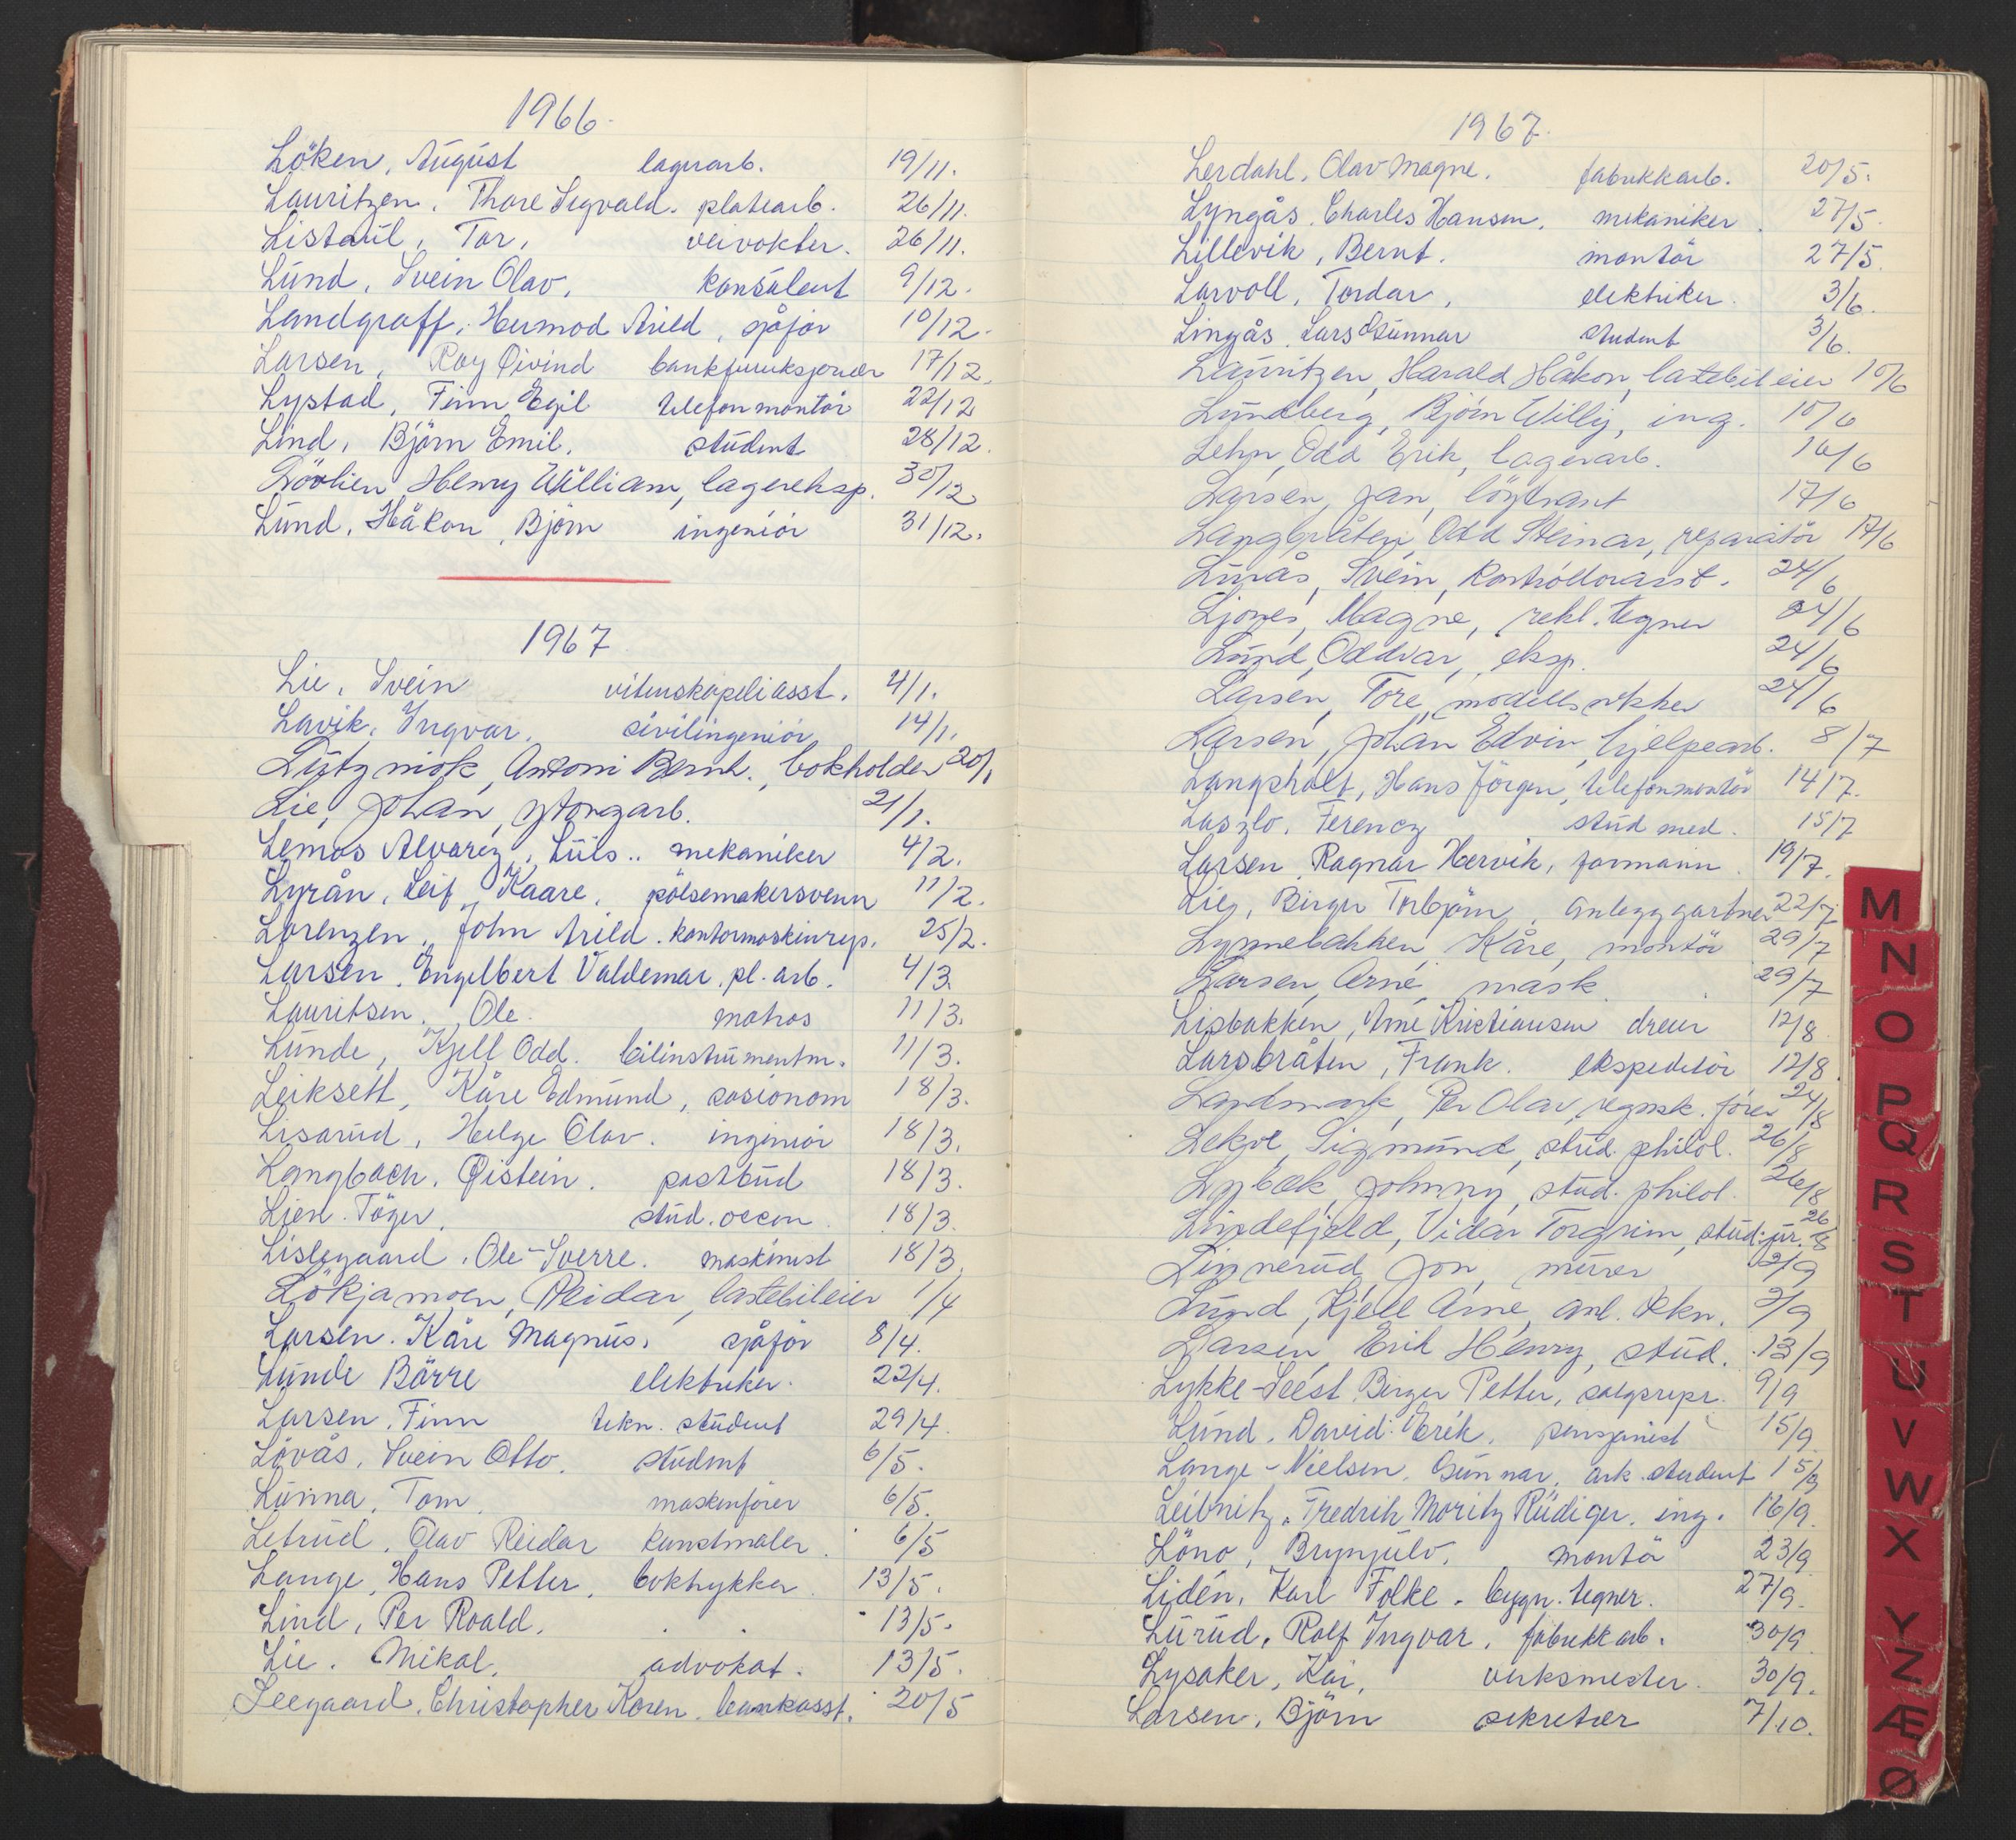 1966.
Löken, August lagerarb. 19/11.
Lauritzen, Thore Sigvald. platearb. 26/11.
Listaul, Tor, veivokter. 26/11.
Lund, Svein Olav, konsulent 9/12.
Landgraff, Hermod Arild, sjåför 10/12.
Larsen, Roy Öivind bankfunksjonær 17/12.
Lystad, Finn Egil telefonmontör 22/12
Lind, Björn Emil, student 28/12.
Henry William, lagereksp. 30/12
Lund, Håkon Björn ingeniör 31/12.
1967
Lie, Svein vitenskapeliasst. 4/1.
Lavik, Yngvar. sivilingeniör 14/1.
Antoni Bernh., bokholder 20/1
Lie, Johan, 21/1.
Lemos Alvarez, Luis.. mekaniker 4/2.
Lyrån, Leif Kaare, pölsemakersvenn 11/2.
Lorenzen, John Arild. kontormaskinrep. 25/2.
Larsen, Engelbert Valdemar, pl. arb. 4/3.
Lauritsen, Ole. matros 11/3.
Lunde, Kjell Odd. bilinstrumentm. 11/3.
Leiksett, Kåre Edmund, sosionom 18/3.
Lisarud, Helge Olav. ingeniör 18/3.
Langbach, Öistein. postbud 18/3.
Lien. Töger, stud. oecon. 18/3.
Lislegaard, Ole-Sverre. maskinist 18/3.
Lökjamoen, Reidar, lastebileier 1/4
Larsen. Kåre Magnus. sjåför 8/4.
Lunde Börre elektriker. 22/4.
Larsen, Finn tekn. student 29/4.
Lövås, Svein Otto. student 6/5.
Lunna, Tom, maskinförer 6/5.
Letrud, Olav Reidar kunstmaler. 6/5
Lange, Hans Petter, boktrykker 13/5.
Lind, Per Roald, . . 13/5.
Lie. Mikal, advokat. 13/5.
Leegaard, Christopher Koren. bankasst. 20/5
1967.
Lerdahl, Olav Magne. fabrikkarb. 20/5.
Lyngås, Charles Hansen. mekaniker. 27/5.
Lillevik, Bernt. montör 27/5.
Larvoll, Tordar, elektriker. 3/6.
Lingås, Lars Gunnar student 3/6.
Lauritzen, Harald Håkon, lastebileier 10/6
Lundberg, Björn Willy, ing. 10/6
Lehn, Odd Erik, lagerarb. 10/6
Larsen, Jan, löytnant 17/6
Langbråten, Odd Steinar, reparatör 17/6
Linås, Svein, kontrollørasst. 24/6
Ljones, Magne, rekl. tegner 24/6
Lund, Oddvar, eksp. 24/6
Larsen, Tore, modellsnekker 24/6
Larsen, Johan Edvin, hjelpearb. 8/7
Langsholt, Hans Jörgen, telefonmontör 14/7.
Laszlo, Ferencz stud med. 15/7
Larsen, Ragnar Hervik, formann. 19/7.
Lie, Birger Torbjörn, anlegggartner 22/7
Lynnebakken, Kåre, montör 29/7
Larsen, Arne, mask. 29/7
Lisbakken, Arne Kristiansen dreier 12/8
Larsbråten, Frank. ekspeditör 12/8.
Landmark, Per Olav, regnsk. förer 24/8
Lekve, Sigmund, stud. philol. 26/8
Lybæk, Johnny, stud. philol. 26/8
Lindefjeld, Vidar Torgrim, stud. jur. 26/8
Linnerud, Jon, murer 2/9
Lund, Kjell Arne, anl. tekn. 2/9
Larsen, Erik Henry, stud. 13/9
Lykke-Seest, Birger Petter, salgsrepr. 9/9
Lund, David Erik, pensjonist 15/9.
Lange-Nielsen, Gunnar, ark. student 15/9
Leibnitz, Fredrik Moritz Rüdiger, ing. 16/9.
Löno, Brynjulv, montör 23/9.
Lidén, Karl Folke. bygn. tegner. 27/9.
Lurud, Rolf Yngvar. fabrikkarb. 30/9.
Lysaker, Kai, verksmester. 30/9.
Larsen, Björn sekretær 7/10.
M
N
O
P
Q
R
S
T
U
V
W
X
Y
Z
Æ
Ø